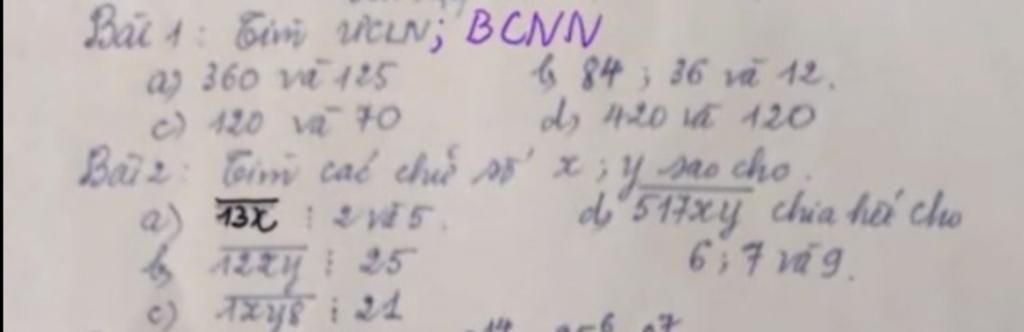 Bài 1: Tìm ƯCLN; BCNN
a) 360 và 125 b, 84; 36 và 12.
c) 120 và 70 d, 420 và 120
Bài 2: Tìm các chữ số x; y sao cho.
a) 13x ⋮ 2 và 5. d, 517xy chia hết cho
b, 12xy ⋮ 25 6; 7 và 9.
c) 1xy8 ⋮ 21